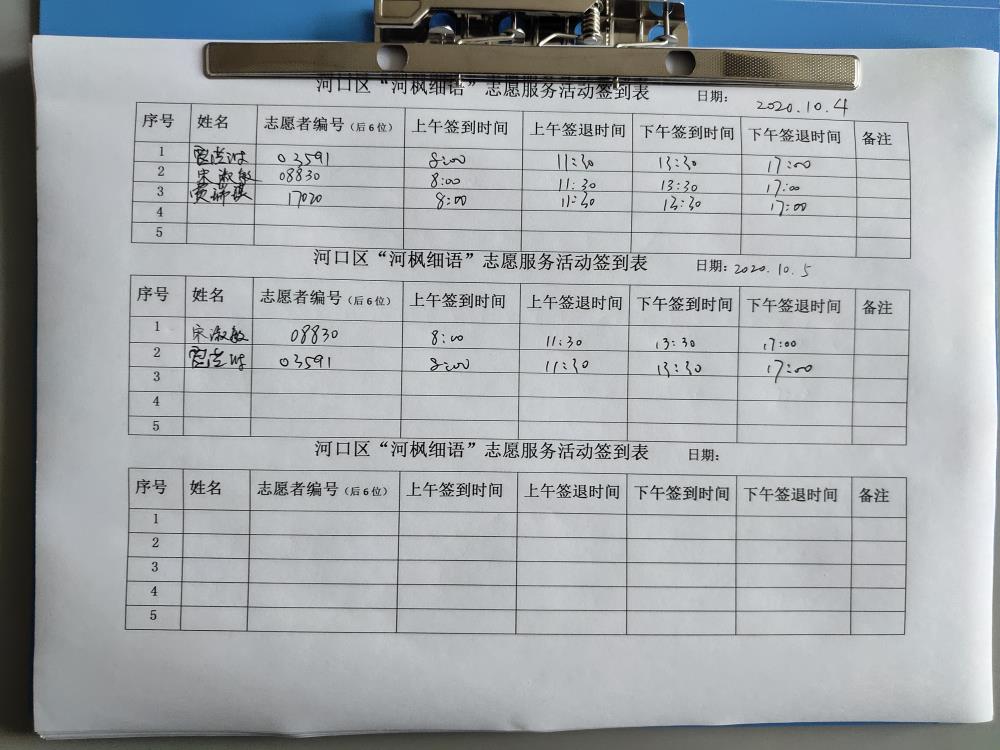 河口区“河枫细语”志愿服务活动签到表 日期: 2020.10.4
序号 姓名 志愿者编号（后6位） 上午签到时间 上午签退时间 下午签到时间 下午签退时间 备注
1 03591 8:00 11:30 13:30 17:00
2 宋淑敏 08830 8:00 11:30 13:30 17:00
3 17020 8:00 11:30 13:30 17:00
4
5
河口区“河枫细语”志愿服务活动签到表 日期: 2020.10.5
序号 姓名 志愿者编号（后6位） 上午签到时间 上午签退时间 下午签到时间 下午签退时间 备注
1 宋淑敏 08830 8:00 11:30 13:30 17:00
2 03591 8:00 11:30 13:30 17:00
3
4
5
河口区“河枫细语”志愿服务活动签到表 日期:
序号 姓名 志愿者编号（后6位） 上午签到时间 上午签退时间 下午签到时间 下午签退时间 备注
1
2
3
4
5